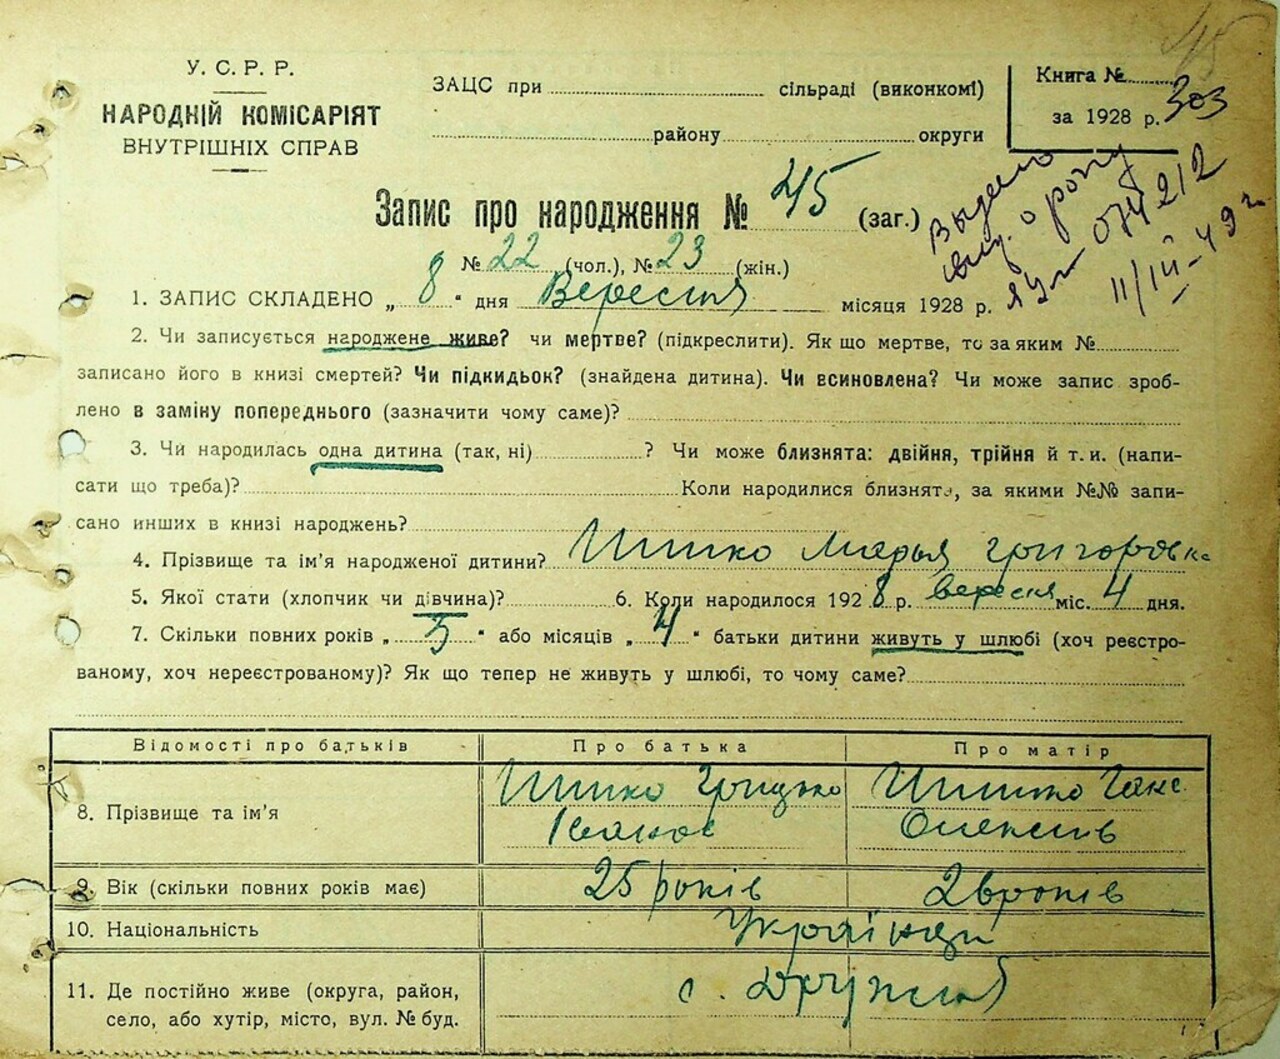 У. С. Р. Р.
НАРОДНІЙ КОМІСАРІЯТ
ВНУТРІШНІХ СПРАВ
ЗАЦС при сільраді (виконкомі)
району округи
Книга №
за 1928 р. 303
Запис про народження № 45 (заг.)
№ 22 (чол.), № 23 (жін.)
Выдано
о
074212
11/III-49 г.
1. ЗАПИС СКЛАДЕНО „ 8 “ дня Вересня місяця 1928 р.
2. Чи записується народжене живе? чи мертве? (підкреслити). Як що мертве, то за яким №
записано його в книзі смертей? Чи підкидьок? (знайдена дитина). Чи всиновлена? Чи може запис зроб-
лено в заміну попереднього (зазначити чому саме)?
3. Чи народилась одна дитина (так, ні) ? Чи може близнята: двійня, трійня й т. и. (напи-
сати що треба)? Коли народилися близнята, за якими №№ запи-
сано инших в книзі народжень?
4. Прізвище та ім'я народженої дитини? Шишко Марья Григоровна
5. Якої стати (хлопчик чи дівчина)? 6. Коли народилося 1928 р. вересня міс. 4 дня.
7. Скільки повних років „ 5 “ або місяців „ 4 “ батьки дитини живуть у шлюбі (хоч реєстро-
ваному, хоч нереєстрованому)? Як що тепер не живуть у шлюбі, то чому саме?
Відомості про батьків Про батька Про матір
8. Прізвище та ім'я Шишко Грицько Шишко
Іванов Олексіїв
9. Вік (скільки повних років має) 25 років 26 років
10. Національність Українці
11. Де постійно живе (округа, район, с.
село, або хутір, місто, вул. № буд.